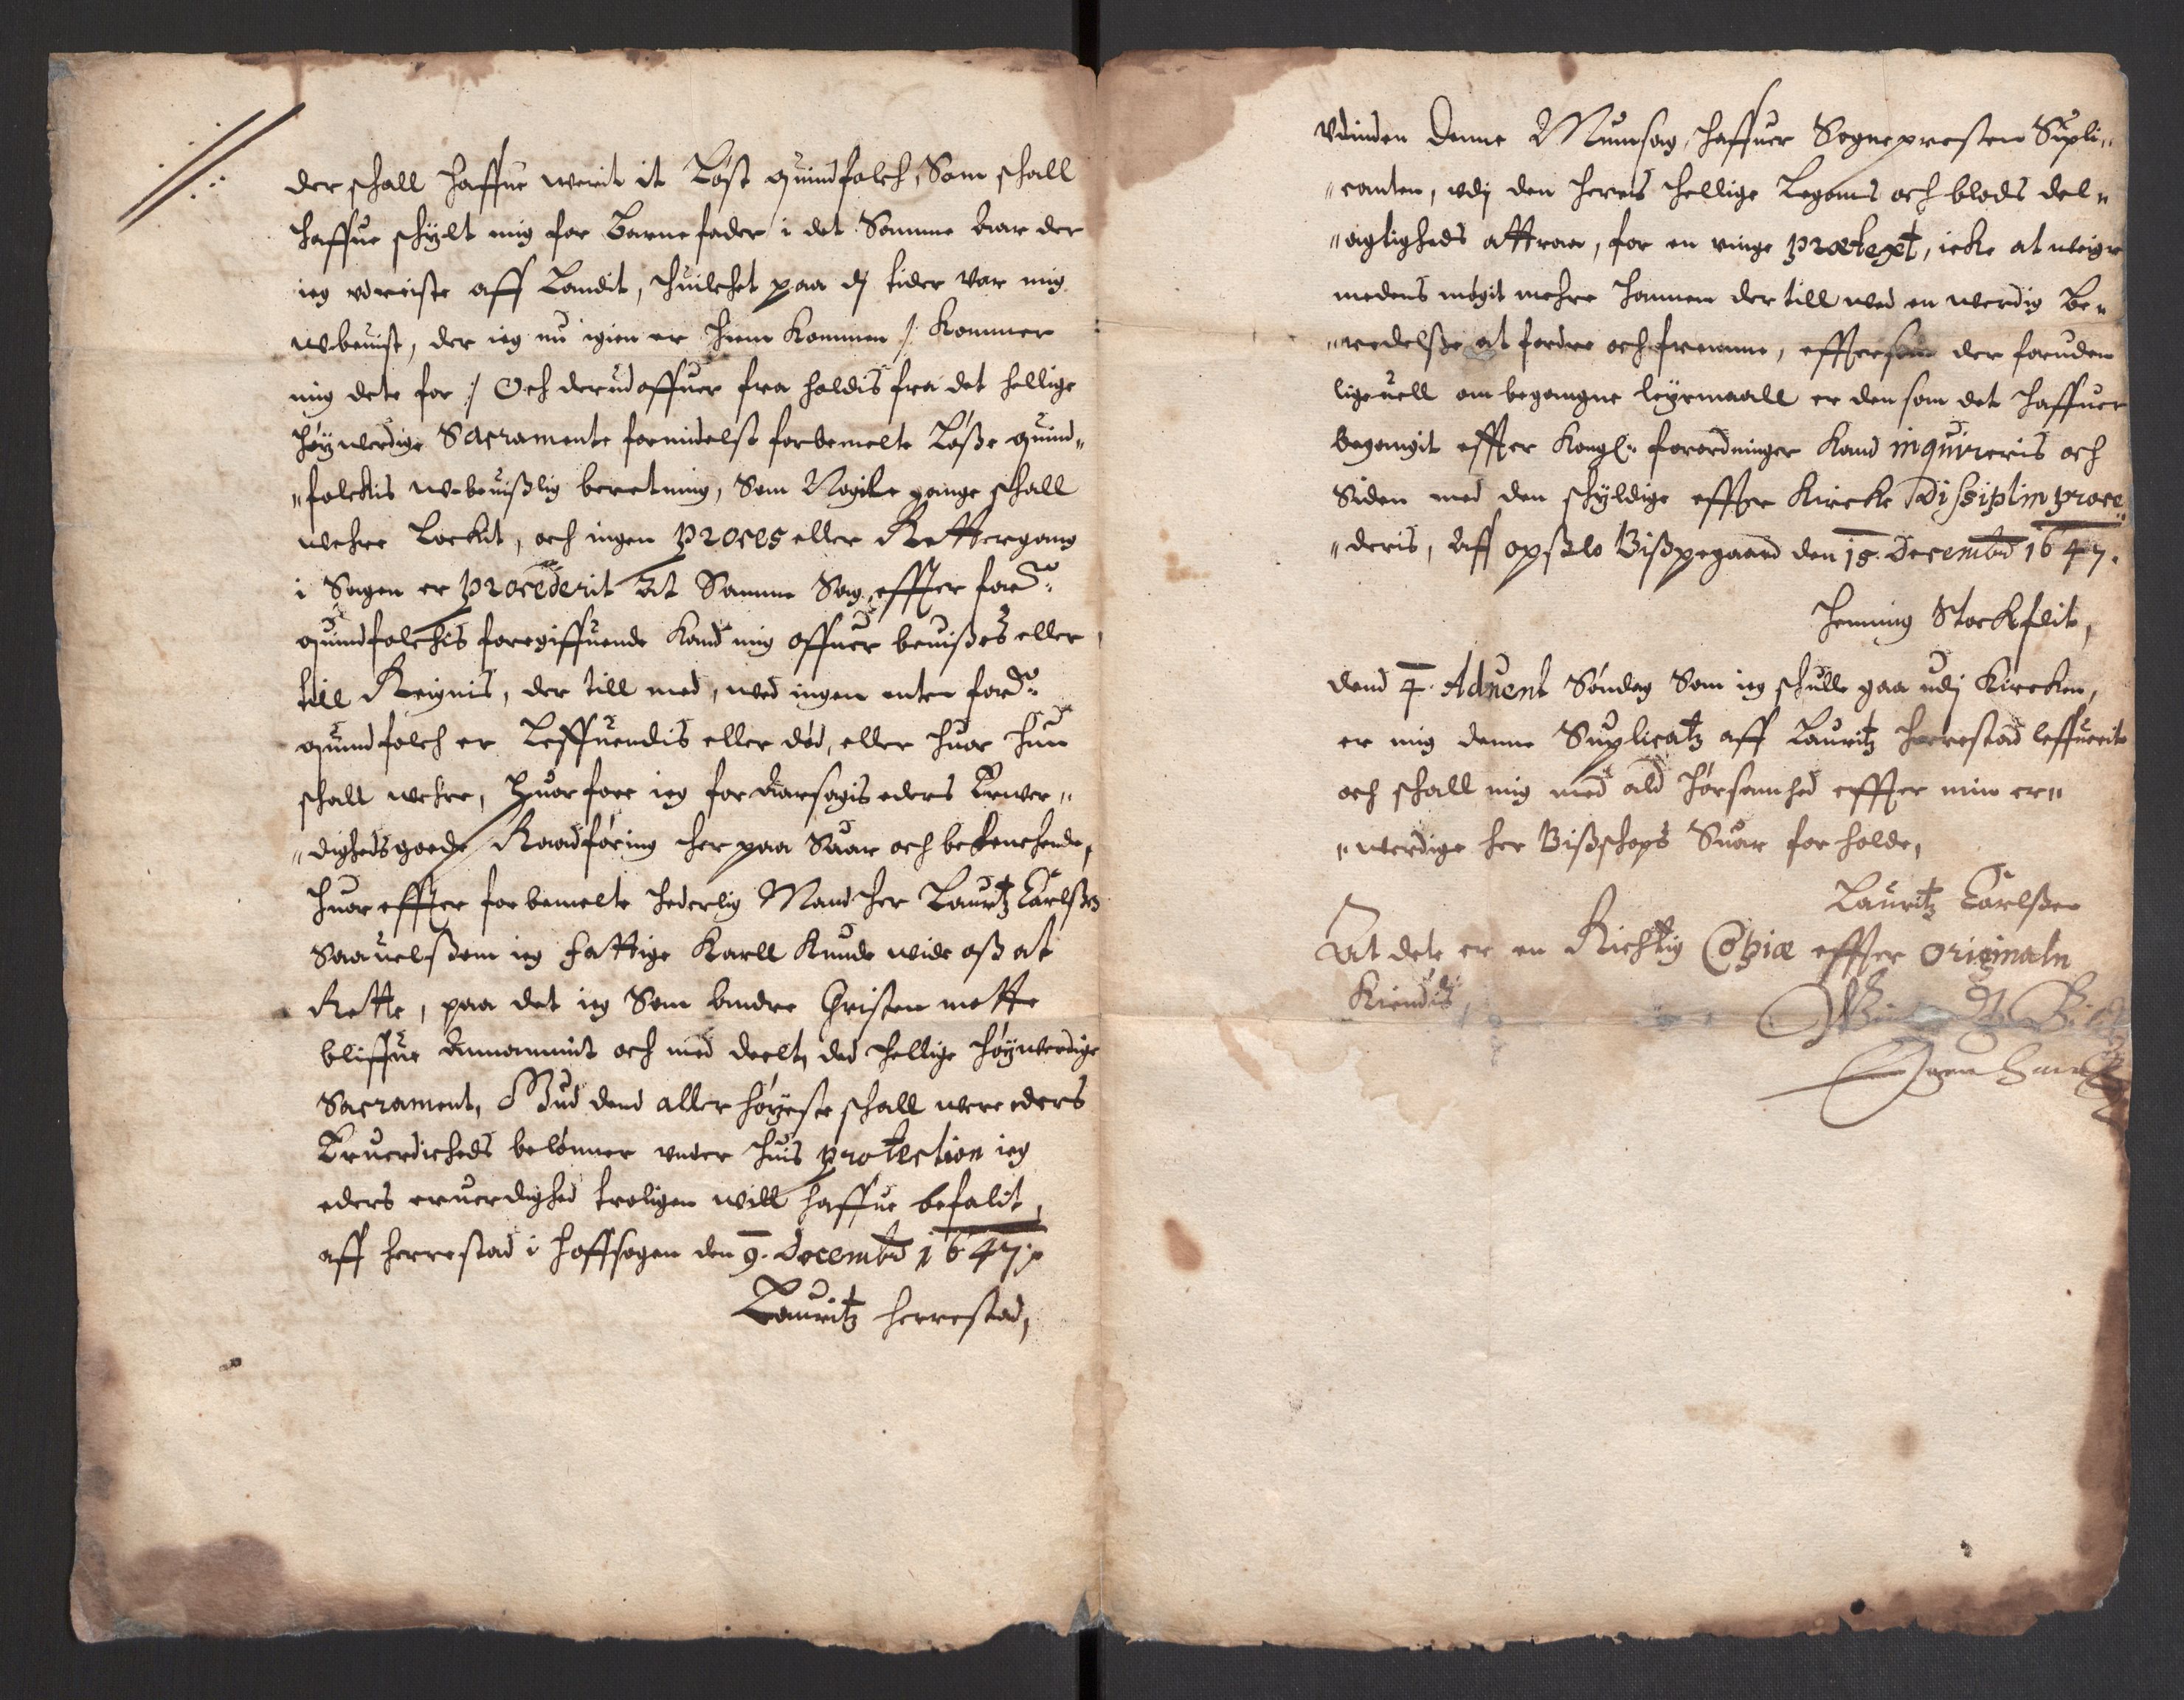 der schall haffue werit it Løst quindfolch, Som schall
haffue schylt mig for Barnefader i det Samme Aar der
ieg vdreiste aff Landit, huilchet paa dj tider var mig
wbeuist, der ieg nu igien er hiem kommen /: kommer
mig dete for :/ Och derudoffuer fra holdis fra det hellige
høyuerdige Sacramente formidelst forbemelte Løsse quind„
„folchis wbeuißlig beretning, Som Nogle gange schall
wehre Lockit, och ingen proces eller Rettergang
i Sagen er procederit at Samme Sag, effter ford:
quindfolchis foregiffuende kand mig offuer beuißes eller
till Reignis, der till med, wed ingen enten ford:
quindfolch er Leffuendis eller død, eller huor hun
schall wehre, Huorfore ieg foraarsagis eders Erwer„
„digheds goede Raadføring her paa Suar och betenchende,
huor effter forbemelte hederlig Mand her Lauritz Carlßen
Saauelsom ieg fattige Karll kunde wide oß at
Rette, paa det ieg Som Andre Christen motte
bliffue Annammit och med deelt, ded hellige høyuerdige
Sacrament, Gud dend aller høyeste schall were eders
Eruerdicheds belønner vnder huis protection ieg
eders eruerdighed troligen will haffue befalit,
aff herrestad i hoffsogen den 9. Decembd 1647:
Lauritz herrestad,
Vdinden denne Mumsag, haffuer Sognepresten Supli„
„canten, vdj den herris hellige Legoms och blods del„
„agtigheds attraa, for en ringe prætext, icke at weigre
medens møgit mehre hannem der till med en werdig Be„
„redelße at fordre och fremme, effter som der foruden
ligeuell om begangne leyrmaall er den som det haffuer
begangit effter Kongl: forordninger kand inquireris och
Siden med den schyldige effter Kircke dissiplin proce„
„deris, Aff opßlo Bißpegaard den 15. Decembd 1647.
Henning Stockflit,
dend 4. Aduent Søndag Som ieg schulle gaa udj Kircken,
er mig denne Suplicatz aff Lauritz herrestad leffuerit
och schall mig med ald hørsamhed effter min er„
„werdige her Bißschops Suar forholde,
Lauritz Carlßen
At dete er en Richtig Copiæ effter originaln
Kiendis,